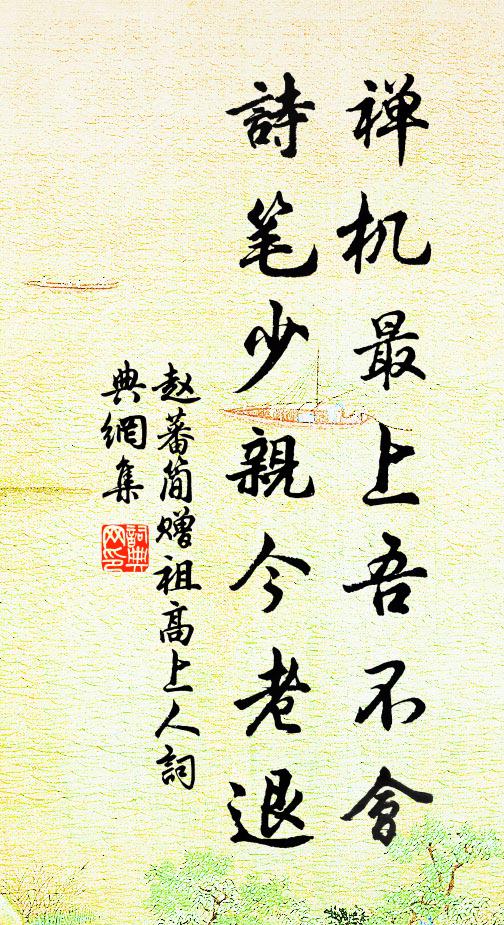 禅机最上吾不會
詩笔少親今老退
赵蕃简赠祖高上人詞
典網集
詞典
网印